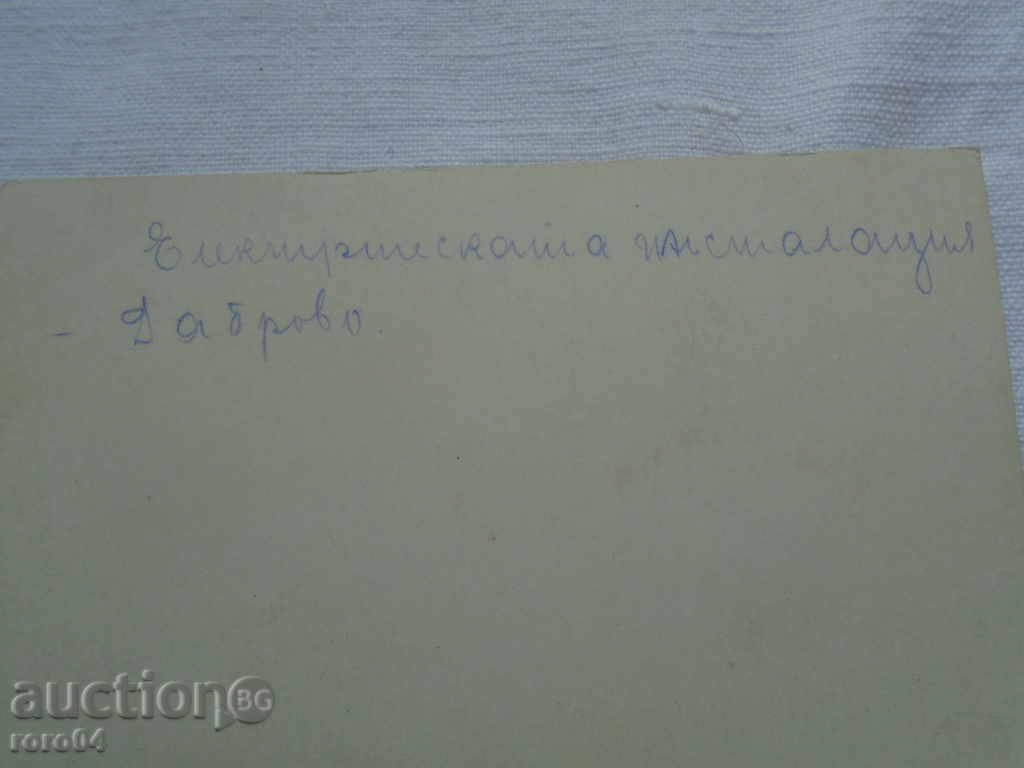 Електрическата инсталация
- Габрово.
auctionBG
roro04